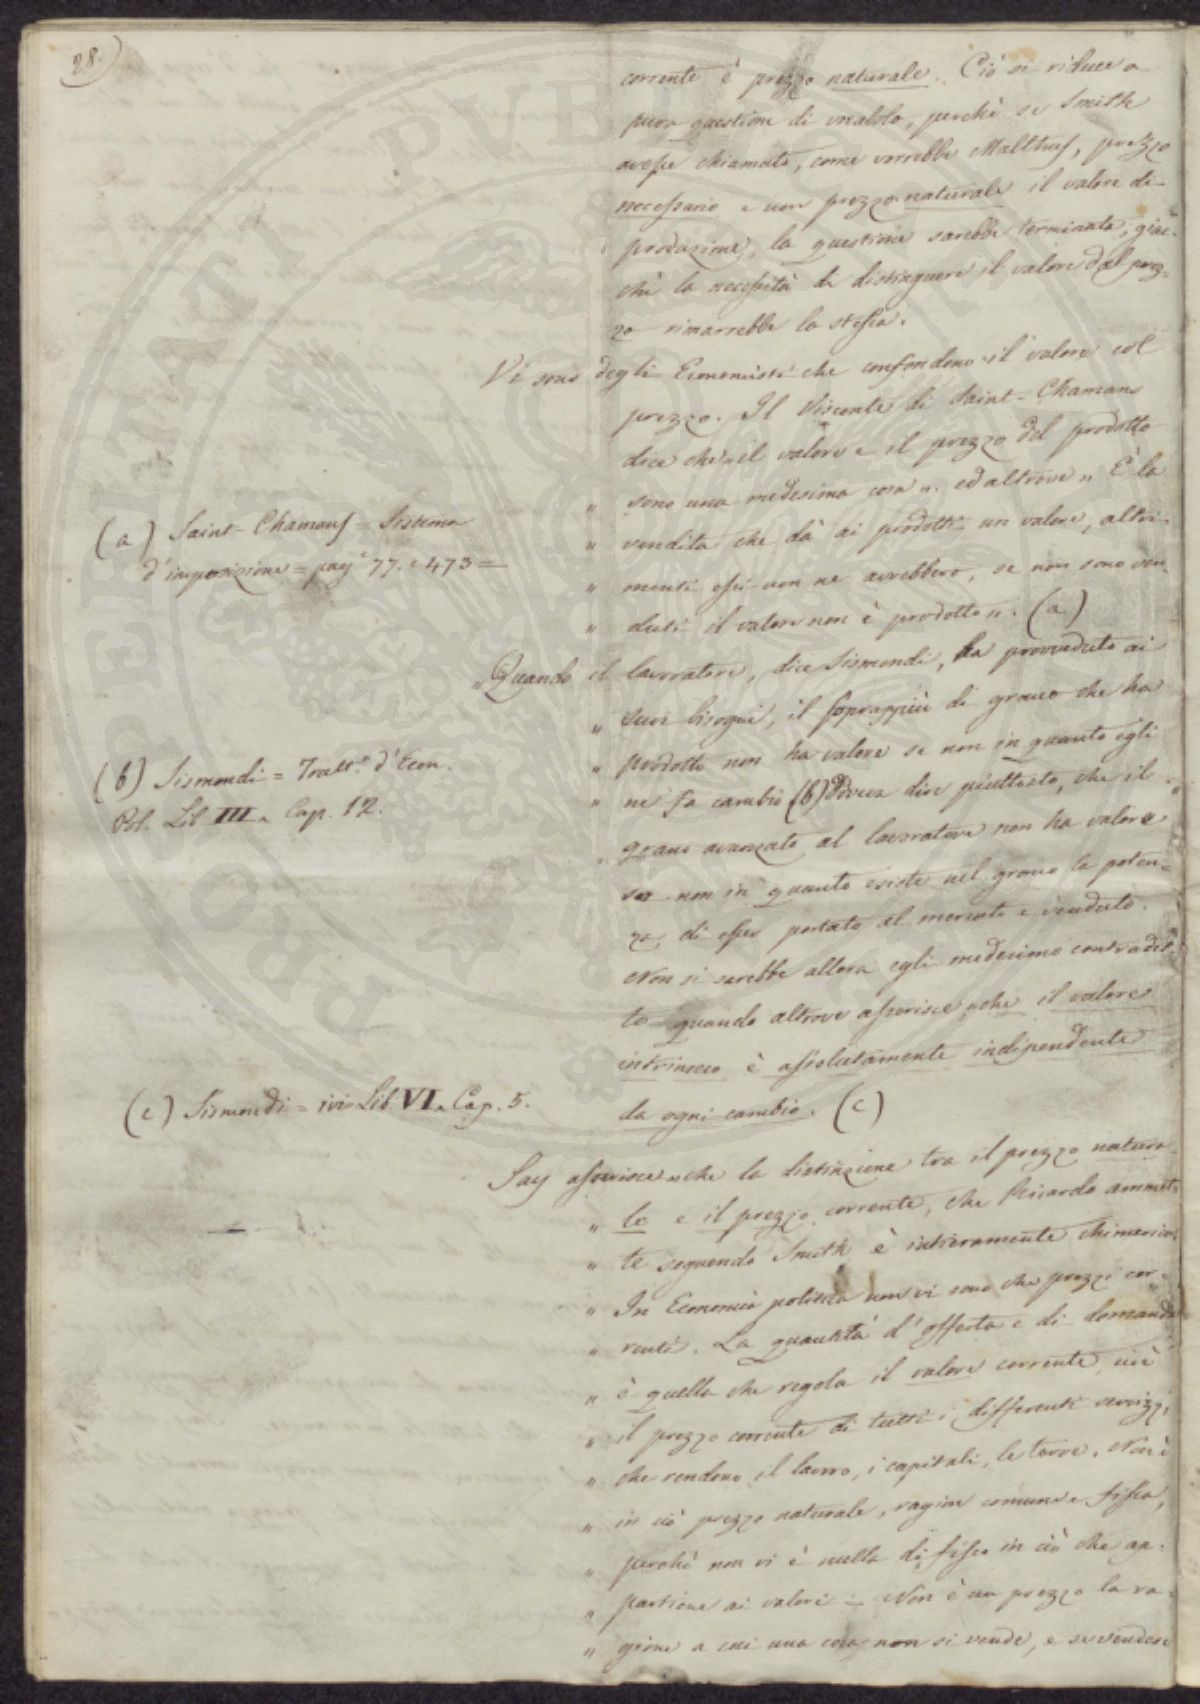 28.
corrente è prezzo naturale. Ciò si riduce a
pura questione di vocabolo, perchè se Smith
avesse chiamato, come vorrebbe Malthus, prezzo
necessario e non prezzo naturale il valore di
produzione, la questione sarebbe terminata, giac-
chè la necessità di distinguere il valore dal prez-
zo rimarrebbe la stessa.
Vi sono degli Economisti che confondono il valore col
prezzo. Il Visconte di Saint-Chamans
dice che „ il valore e il prezzo del prodotto
„ sono una medesima cosa „. ed altrove „ È la
„ vendita che dà ai prodotti un valore, altri-
„ menti essi non ne avrebbero, se non sono ven-
„ duti il valore non è prodotto „. (a)
(a) Saint-Chamans = Sistema
d'imposizione = pag.e 77. e 473 =
„ Quando il lavoratore, dice Sismondi, ha provveduto ai
„ suoi bisogni, il soprappiù di grano che ha
„ prodotto non ha valore se non in quanto egli
„ ne fa cambio (b) Dovea dire piuttosto, che il
grano avanzato al lavoratore non ha valore
se non in quanto esiste nel grano la poten-
za di esser portato al mercato e venduto.
Non si sarebbe allora egli medesimo contradet-
to quando altrove asserisce „ che il valore
intrinseco è assolutamente indipendente
da ogni cambio. (c)
(b) Sismondi = Tratt.o d'Econ.
Pol. Lib. III. Cap. 12.
(c) Sismondi = ivi Lib. VI. Cap. 5.
Say asserisce „ che la distinzione tra il prezzo natura-
„ le e il prezzo corrente, che Ricardo ammet-
„ te seguendo Smith è intieramente chimerica.
„ In Economia politica non vi sono che prezzi cor-
„ renti. La quantità d'offerta e di domanda
„ è quella che regola il valore corrente, cioè
„ il prezzo corrente di tutti i differenti servizj,
„ che rendono il lavoro, i capitali, le terre. Non è
„ in ciò prezzo naturale, ragion comune e fissa,
„ perchè non vi è nulla di fisso in ciò che ap-
„ partiene ai valori = Non è un prezzo la ra-
„ gione a cui una cosa non si vende, e se vendesi